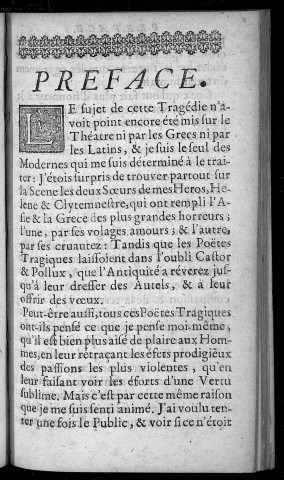 PREFACE.
LE sujet de cette Tragédie n'a-
voit point encore été mis sur le
Théatre ni par les Grecs ni par
les Latins, & je suis le seul des
Modernes qui me suis déterminé à le trai-
ter: J'étois surpris de trouver partout sur
la Scene les deux Sœurs de mes Heros, He-
lene & Clytemnestre, qui ont rempli l'A-
sie & la Grece des plus grandes horreurs;
l'une, par ses volages amours; & l'autre,
par ses cruautez: Tandis que les Poëtes
Tragiques laissoient dans l'oubli Castor
& Pollux, que l'Antiquité a réverez jus-
qu'à leur dresser des Autels, & à leur
offrir des vœux.
Peut-être aussi, tous ces Poëtes Tragiques
ont-ils pensé ce que je pense moi-même,
qu'il est bien plus aisé de plaire aux Hom-
mes, en leur retraçant les éfets prodigieux
des passions les plus violentes, qu'en
leur faisant voir les éforts d'une Vertu
sublime. Mais c'est par cette même raison
que je me suis senti animé. J'ai voulu ten-
ter une fois le Public, & voir si ce n'étoit